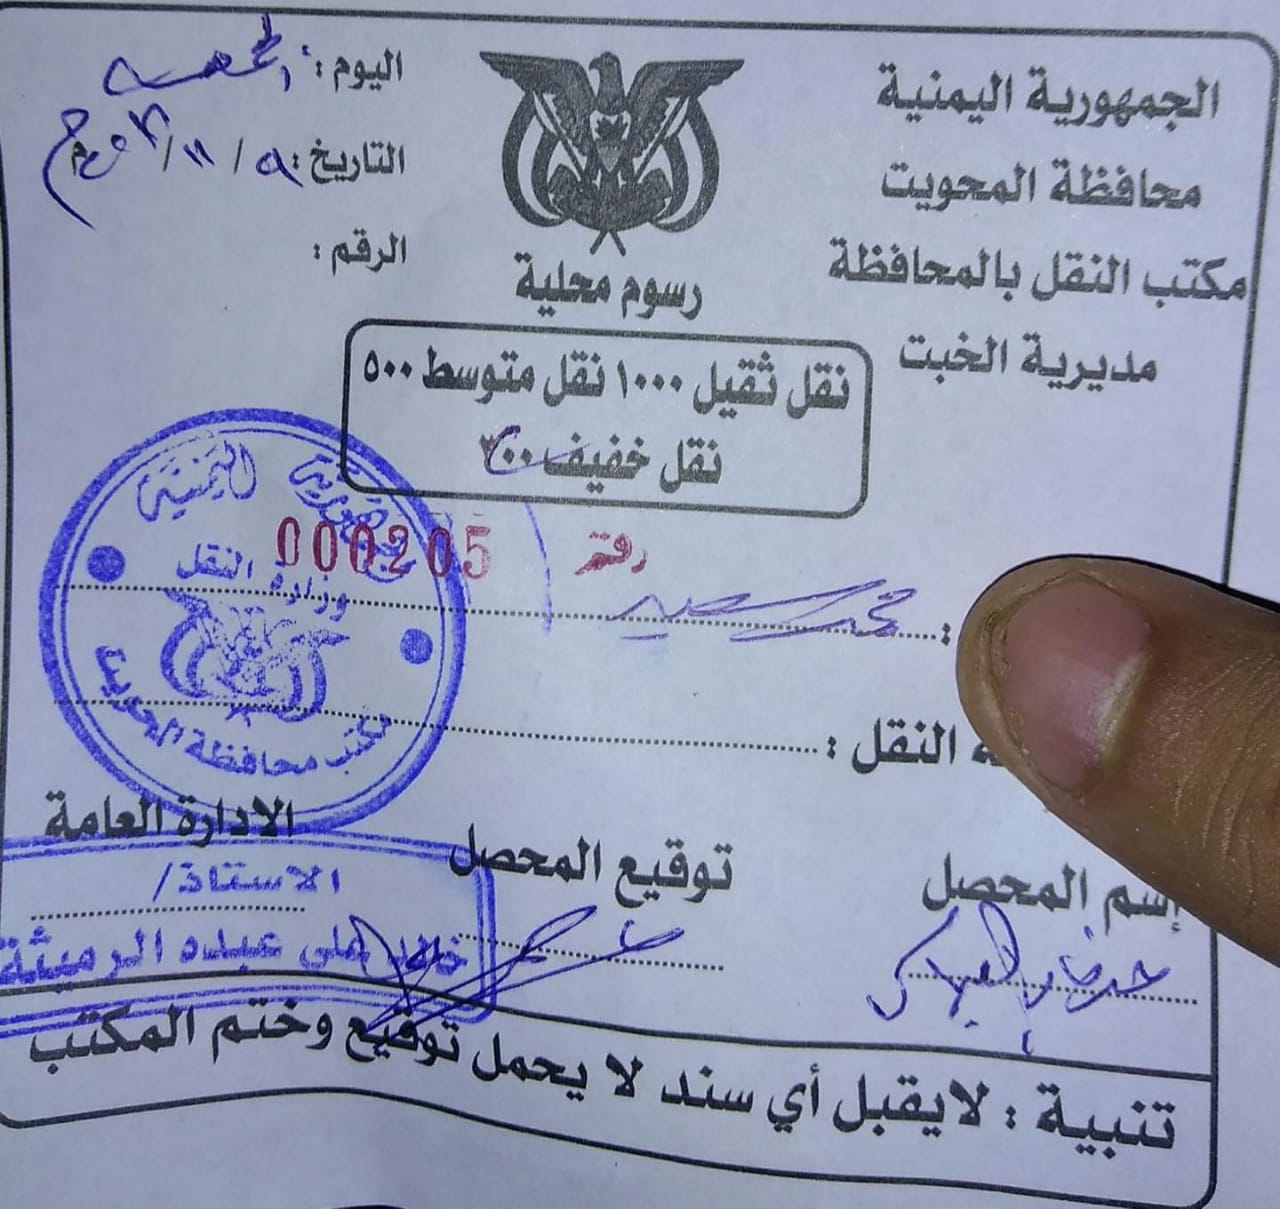 الجمهورية اليمنية
محافظة المحويت
مكتب النقل بالمحافظة
مديرية الخبت
رسوم محلية
اليوم : الجمعه
التاريخ : / ١١ /
الرقم :
نقل ثقيل ١٠٠٠ نقل متوسط ٥٠٠
نقل خفيف ٣٠٠
رقم 000205
: محمد سعيد
النقل :
الجمهورية اليمنية
وزارة النقل
مكتب محافظة المحويت
إسم المحصل
توقيع المحصل
الادارة العامة
الاستاذ/
علي عبده الرميثة
تنبية : لايقبل أي سند لا يحمل توقيع وختم المكتب